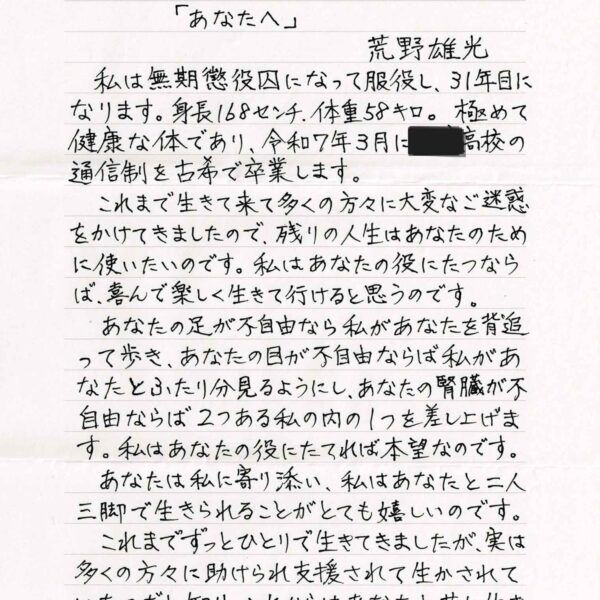 「あなたへ」
荒野雄光
私は無期懲役囚になって服役し、31年目に
なります。身長168センチ、体重58キロ。極めて
健康な体であり、令和7年3月に高校の
通信制を古希で卒業します。
これまで生きて来て多くの方々に大変なご迷惑
をかけてきましたので、残りの人生はあなたのため
に使いたいのです。私はあなたの役にたつなら
ば、喜んで楽しく生きて行けると思うのです。
あなたの足が不自由なら私があなたを背追
って歩き、あなたの目が不自由ならば私があ
なたとふたり分見るようにし、あなたの腎臓が不
自由ならば2つある私の内の1つを差し上げま
す。私はあなたの役にたてれば本望なのです。
あなたは私に寄り添い、私はあなたと二人
三脚で生きられることがとても嬉しいのです。
これまでずっとひとりで生きてきましたが、実は
多くの方々に助けられ支援されて生かされて